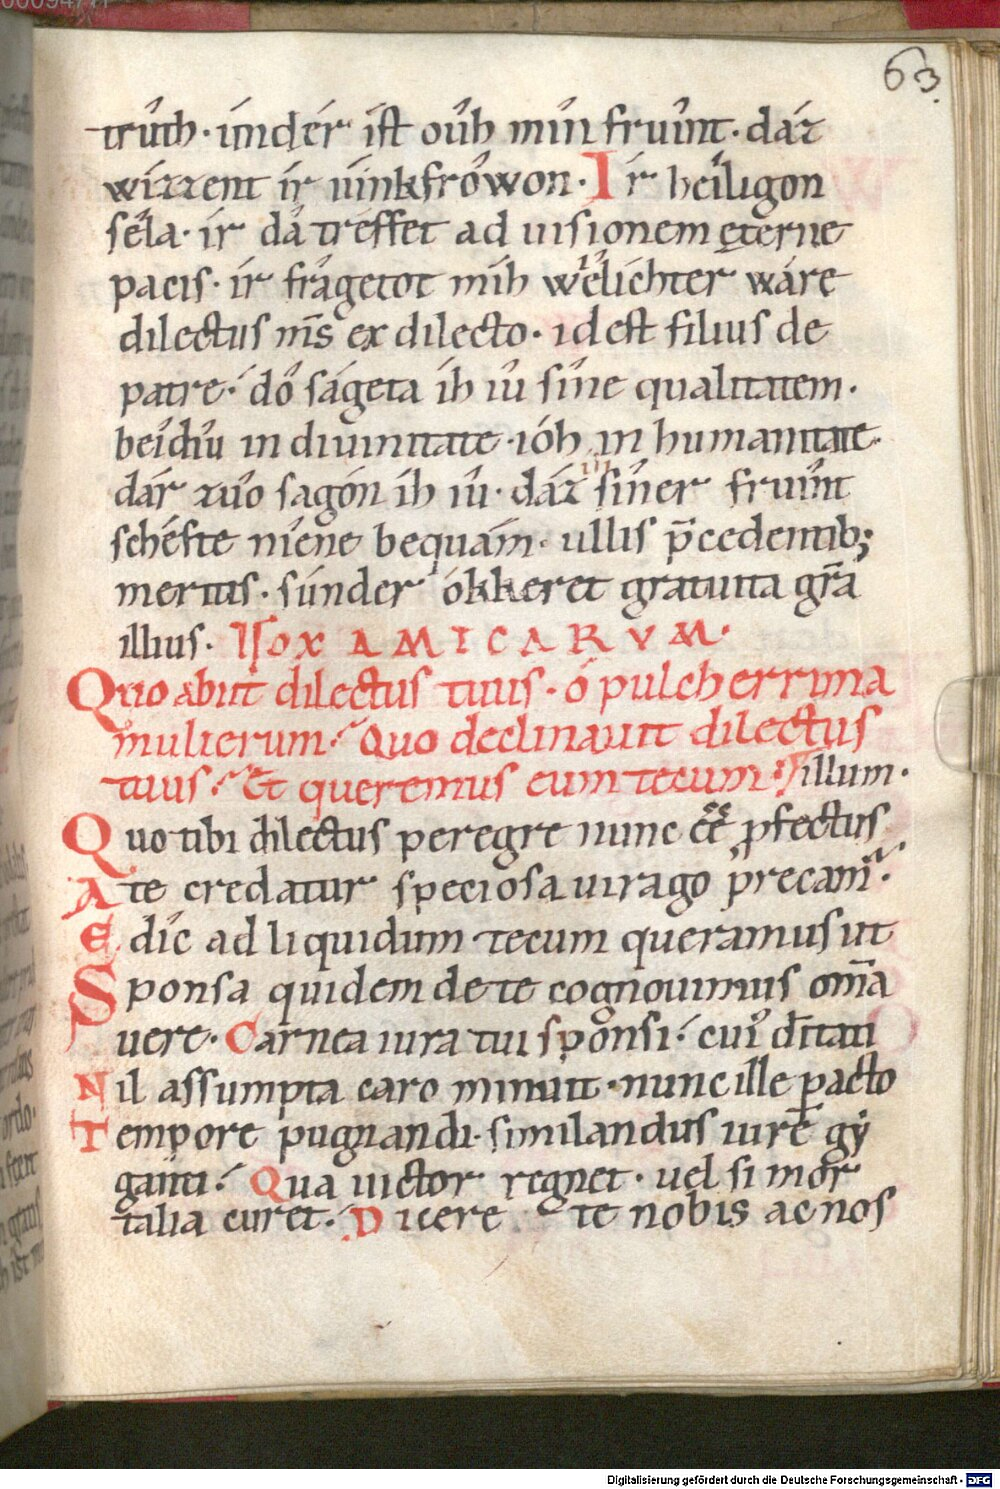 63.
trût. ímder íſt oûh mîn frûint. dáz
wízzent ír iûnkfrôwon. Ir heîligon
ſêla. ír dâ tréffet ad uiſionem ęterne
pacis. ír frâgetot mih wélichter wâre
dilectus m̄s ex dilecto. id eſt filius de
patre. dô ſágeta ih iû ſîne qualitatem.
beîdiu in diuinitate. ióh in humanitate.
dár zuô ſagón ih iû. dáz in ſîner frûint
ſchéfte niêne bequám. ullis p̄cedentib;
meritis. ſúnder ókkeret gratuita gr̄a
illius. Uox AMICARVM.
Quo abiit dilectus tuus. ô pulcherrima
mulierum. Quo declinauit dilectus
tuus. Et queremus eum tecum.
illum.
Quo tibi dilectus peregre nunc eē̄ ꝓfectus
Ate credatur ſpecioſa uirago p̄recam̄.
Edic ad liquidum tecum queramus ut
Sponſa quidem de te cognouimus om̄a
uere. Carnea iura tui ſponſi. cui' ditati
Nil aſſumpta caro minuit. nunc ille pacto
Tempore pugnandi. ſimilandus iure gy
ganti. Qua uictor regnet. uel ſi mor
talia curet. Dicere te nobis ac nos
Digitalisierung gefördert durch die Deutsche Forschungsgemeinschaft - DFG